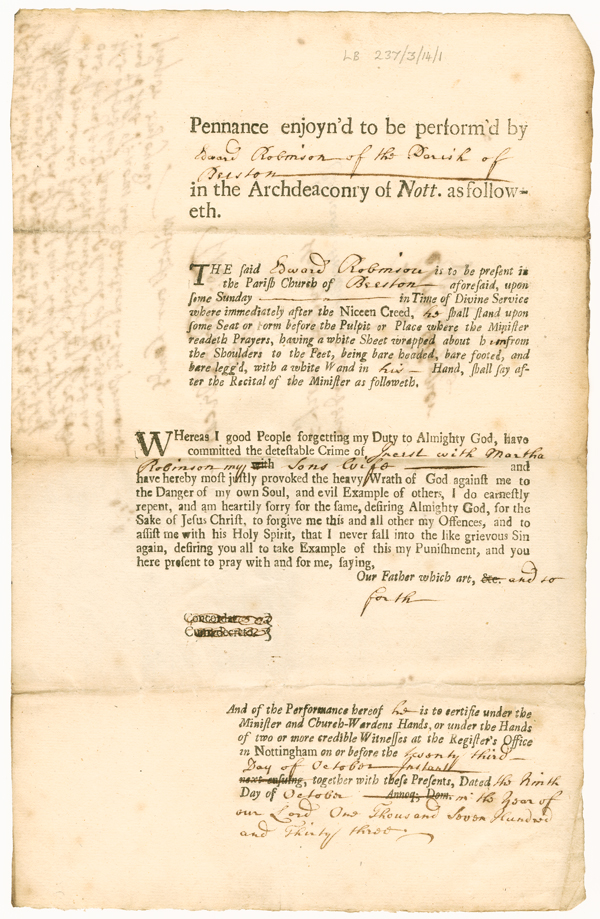 LB 237/3/14/1
Pennance enjoyn'd to be perform'd by
Edward Robinson of the Parish of
Beeston
in the Archdeaconry of Nott. as follow-
eth.
THE said Edward Robinson is to be present in
the Parish Church of Beeston aforesaid, upon
some Sunday in Time of Divine Service
where immediately after the Niceen Creed, he shall stand upon
some Seat or Form before the Pulpit or Place where the Minister
readeth Prayers, having a white Sheet wrapped about him from
the Shoulders to the Feet, being bare headed, bare footed, and
bare legg'd, with a white Wand in his Hand, shall say af-
ter the Recital of the Minister as followeth.
WHereas I good People forgetting my Duty to Almighty God, have
committed the detestable Crime of Incest with Martha
Robinson my with Sons Wife and
have hereby most justly provoked the heavy Wrath of God against me to
the Danger of my own Soul, and evil Example of others, I do earnestly
repent, and am heartily sorry for the same, desiring Almighty God, for the
Sake of Jesus Christ, to forgive me this and all other my Offences, and to
assist me with his Holy Spirit, that I never fall into the like grievous Sin
again, desiring you all to take Example of this my Punishment, and you
here present to pray with and for me, saying,
Our Father which art, &c. and so
forth
And of the Performance hereof he is to certifie under the
Minister and Church-Wardens Hands, or under the Hands
of two or more credible Witnesses at the Register's Office
in Nottingham on or before the twenty third
Day of October Instant
next ensuing, together with these Presents, Dated the Ninth
Day of October Annoq; Dom. in the Year of
our Lord One Thousand Seven Hundred
and Thirty three